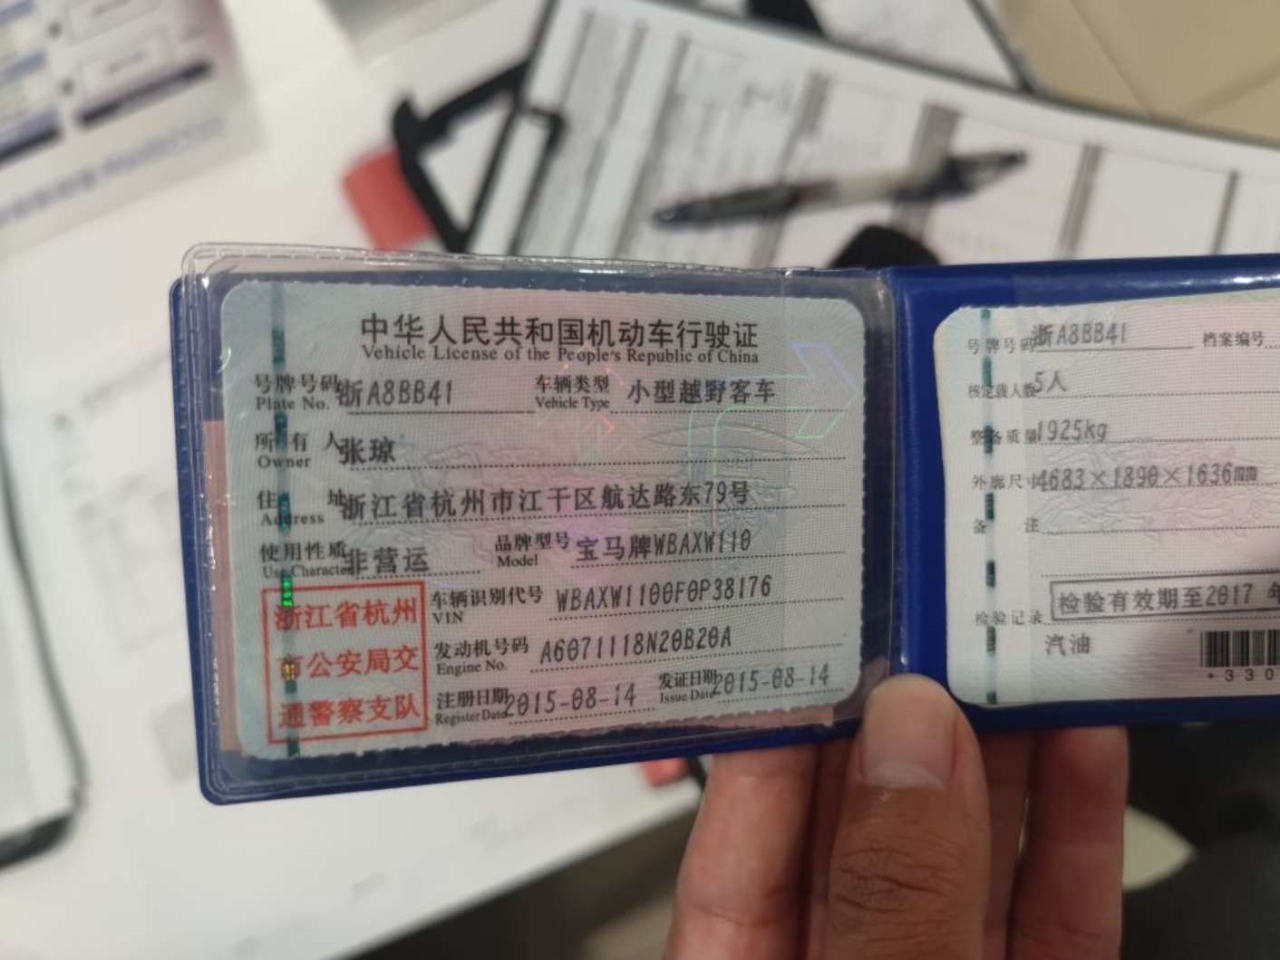 中华人民共和国机动车行驶证
Vehicle License of the People's Republic of China
号牌号码 浙A8BB41 车辆类型 小型越野客车
Plate No. Vehicle Type
所有人 张琼
Owner
住址 浙江省杭州市江干区航达路东79号
Address
使用性质 非营运 品牌型号 宝马牌WBAXW110
Use Character Model
浙江省杭州
市公安局交
通警察支队
车辆识别代号 WBAXW1100F0P38176
VIN
发动机号码 A6071118N20B20A
Engine No.
注册日期 2015-08-14 发证日期 2015-08-14
Register Date Issue Date
号牌号码 浙A8BB41 档案编号
核定载人数 5人
整备质量 1925kg
外廓尺寸 4683×1890×1636mm
备注
检验记录 检验有效期至2017年
汽油
*330